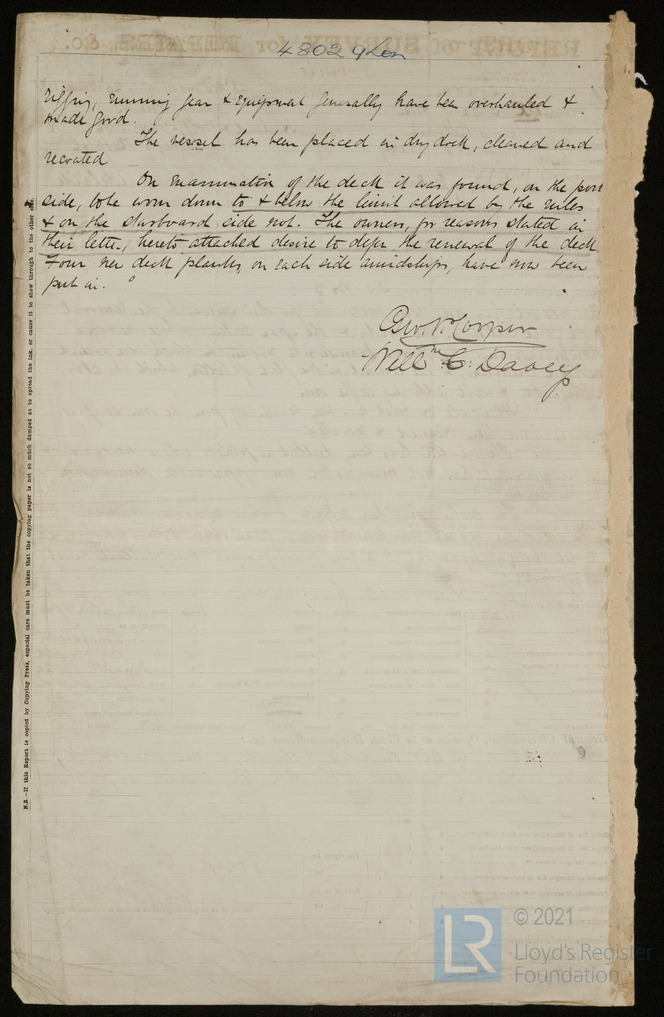 48029 Lon
rigging, running gear & equipment generally have been overhauled &
made good.
The vessel has been placed in dry dock, cleaned and
recoated
On examination of the deck it was found, on the port
side, to be worn down to & below the limit allowed by the rules
& on the starboard side not. The owners, for reasons stated in
their letter, hereto attached desire to defer the renewal of the deck.
Four new deck planks, on each side amidships, have now been
put in.
Geo. Cooper
Willm. C. Davey
N.B.—If this Report is copied by Copying Press, especial care must be taken that the copying paper is not so much damped as to spread the ink, or cause it to show through to the other side.
LR
© 2021
Lloyd's Register
Foundation